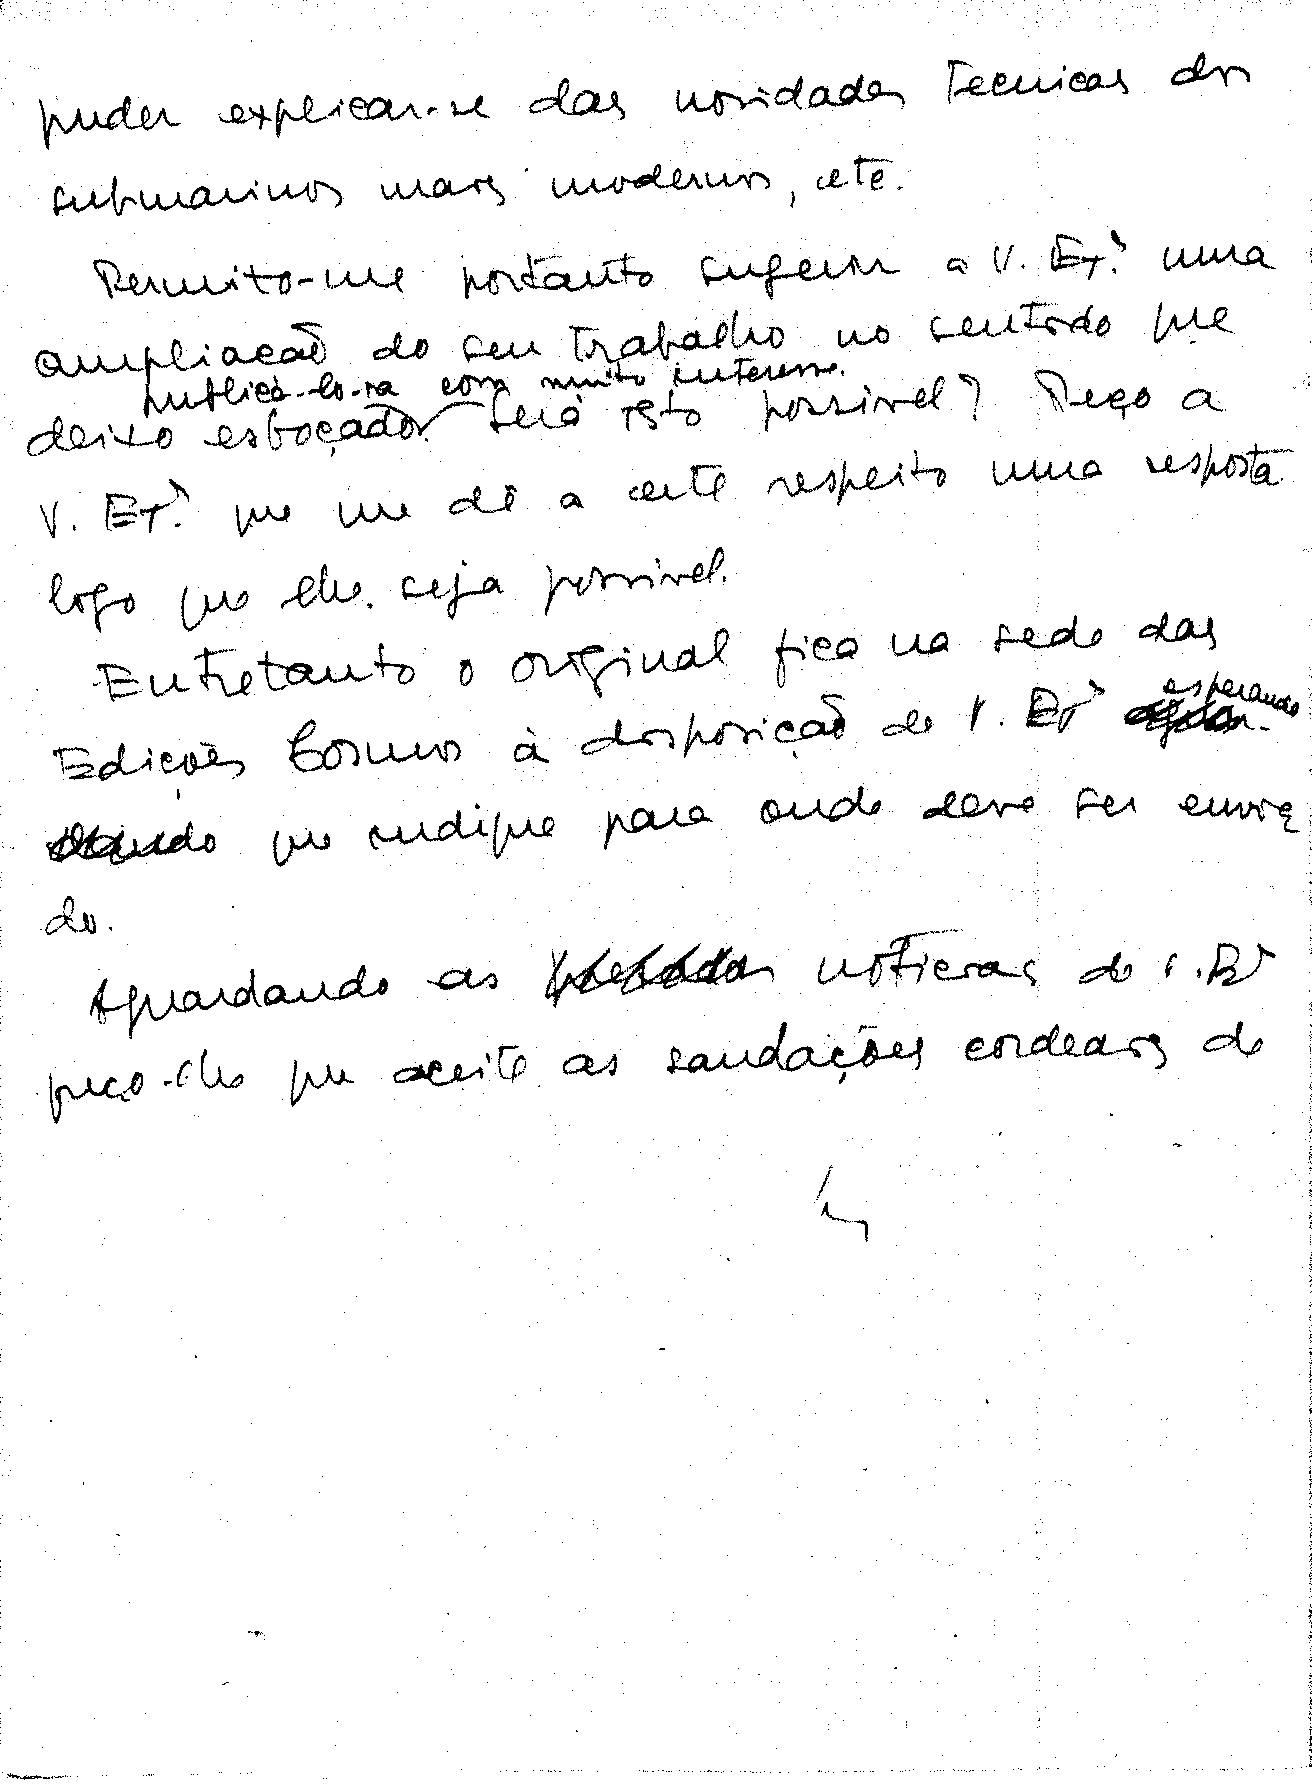 puder explicar-se das novidades tecnicas dos
submarinos mais modernos, etc.
Permito-me portanto sugerir a V. Exª. uma
ampliação do seu trabalho no sentido que
publicá-lo-ia com muito interesse.
deixo esboçado. Será isto possivel? Peço a
V. Exª. que me dê a este respeito uma resposta
logo que lhe seja possivel.
Entretanto o original fica na sede das
esperando
Edições Cosmos à disposição de V. Exª
que indique para onde deve ser envia
do.
Aguardando as noticias de V. Exª
peço-lhe que aceite as saudações cordeais de